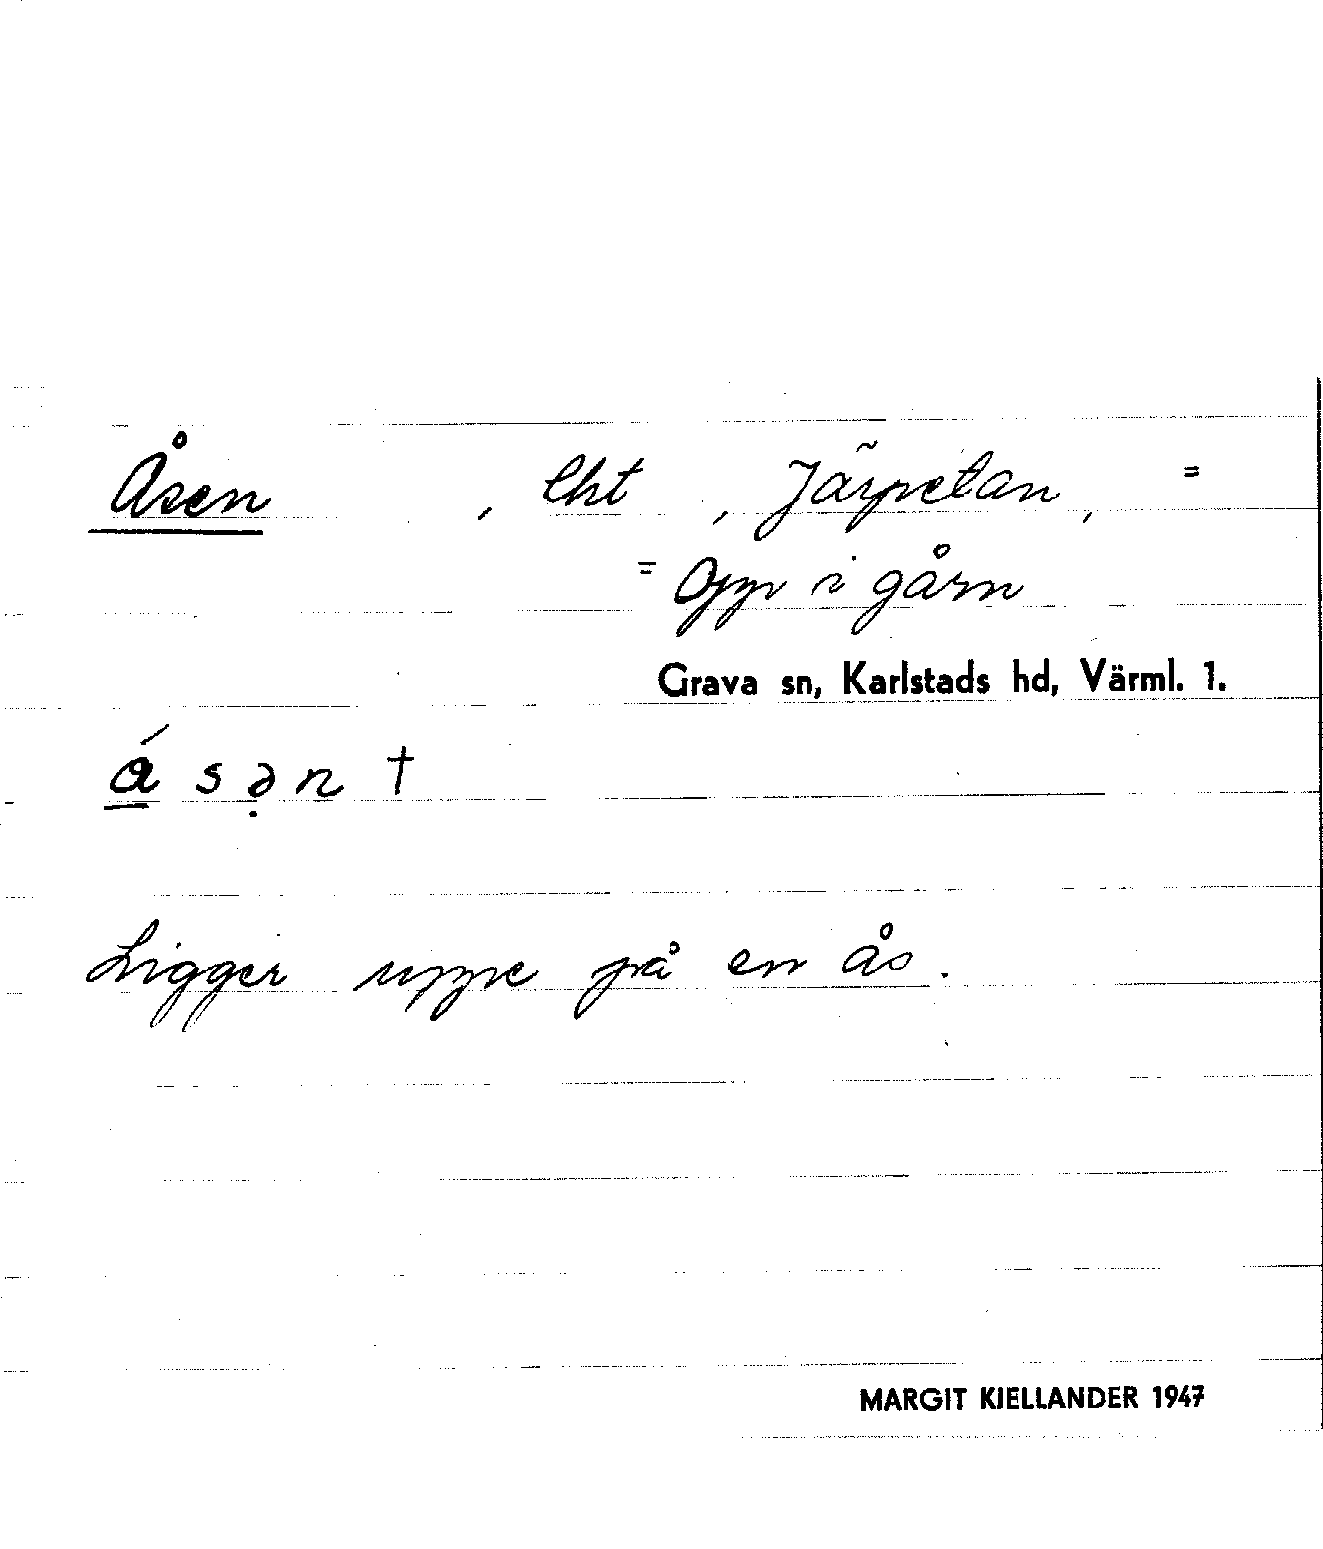 Åsen, lht, Järpetan, =
= Opp i gårn
Grava sn, Karlstads hd, Värml. 1.
ά s ə̣ n †
Ligger uppe på en ås.
MARGIT KJELLANDER 1947